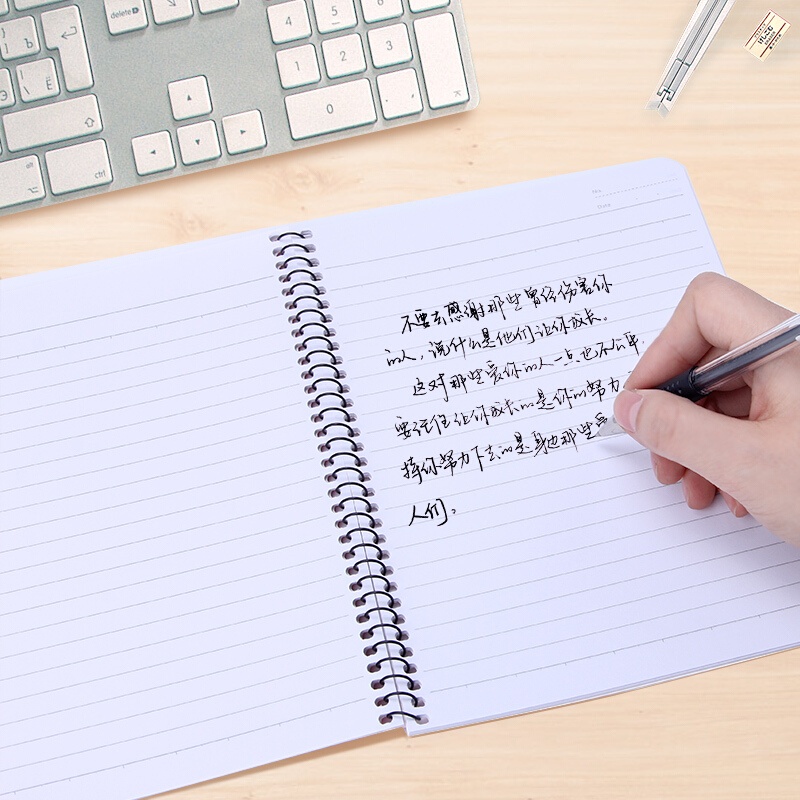 delete
4
5
6
1
2
3
0
.
Ъ
Э
Ё
alt
ctrl
けしごむ
Date
不要去感谢那些曾经伤害你
的人，说什么是他们让你成长。
这对那些爱你的人一点也不公平，
要记住让你成长的是你的努力
撑你努力下去的是身边那些爱
人们。